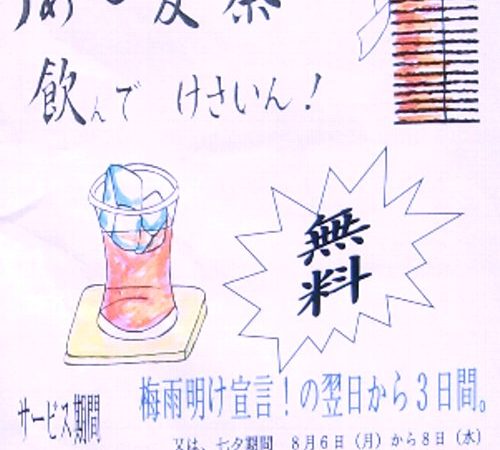 麦茶
飲んで けさいん！
無料
梅雨明け宣言！の翌日から３日間。
サービス期間
又は、七夕期間 ８月６日（月）から８日（水）